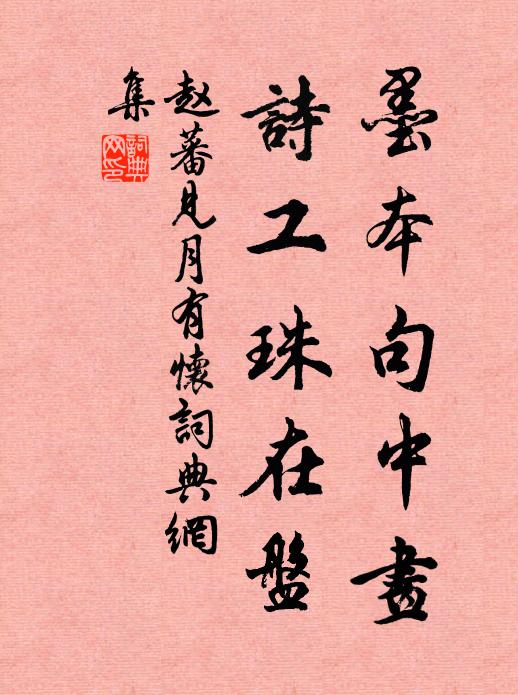 墨本句中畫
詩工珠在盤
赵蕃見月有懷詞典網
集
詞典
网印